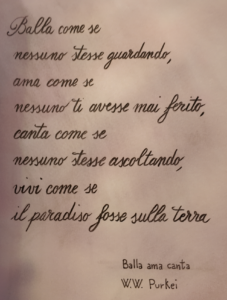 Balla come se
nessuno stesse guardando,
ama come se
nessuno ti avesse mai ferito,
canta come se
nessuno stesse ascoltando,
vivi come se
il paradiso fosse sulla terra
Balla ama canta
W.W. Purkei